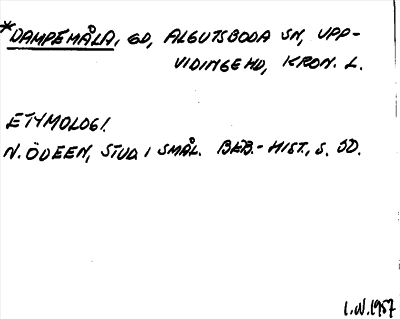 *DAMPEMÅLA, GD, ALGUTSBODA SN, UPP-
VIDINGE HD, KRON. L.
ETYMOLOGI.
N. ÖDEEN, STUD. I SMÅL. BEB.-HIST., S. 50.
I.W.1957